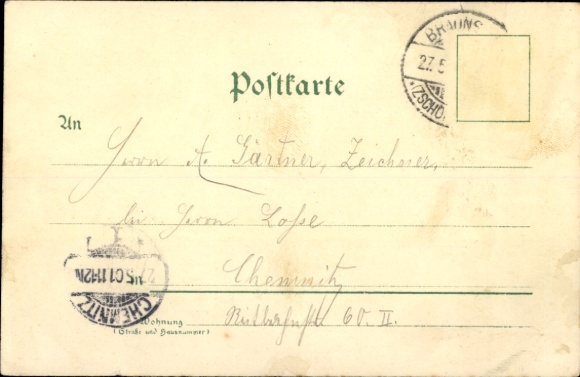 BRAUNS
27.5
(ZSCHO
Postkarte
An
Herrn A. Gärtner, Zeichner,
bei Herrn Lohse
Chemnitz
60. II.
27.5.01.11-12N
CHEMNITZ
1
Wohnung
(Straße und Hausnummer)